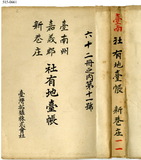 臺南社有地臺帳 新巷庄 一一
六十二冊之內第十一號
臺南州
嘉義郡
新巷庄
社有地臺帳
臺灣拓殖株式會社